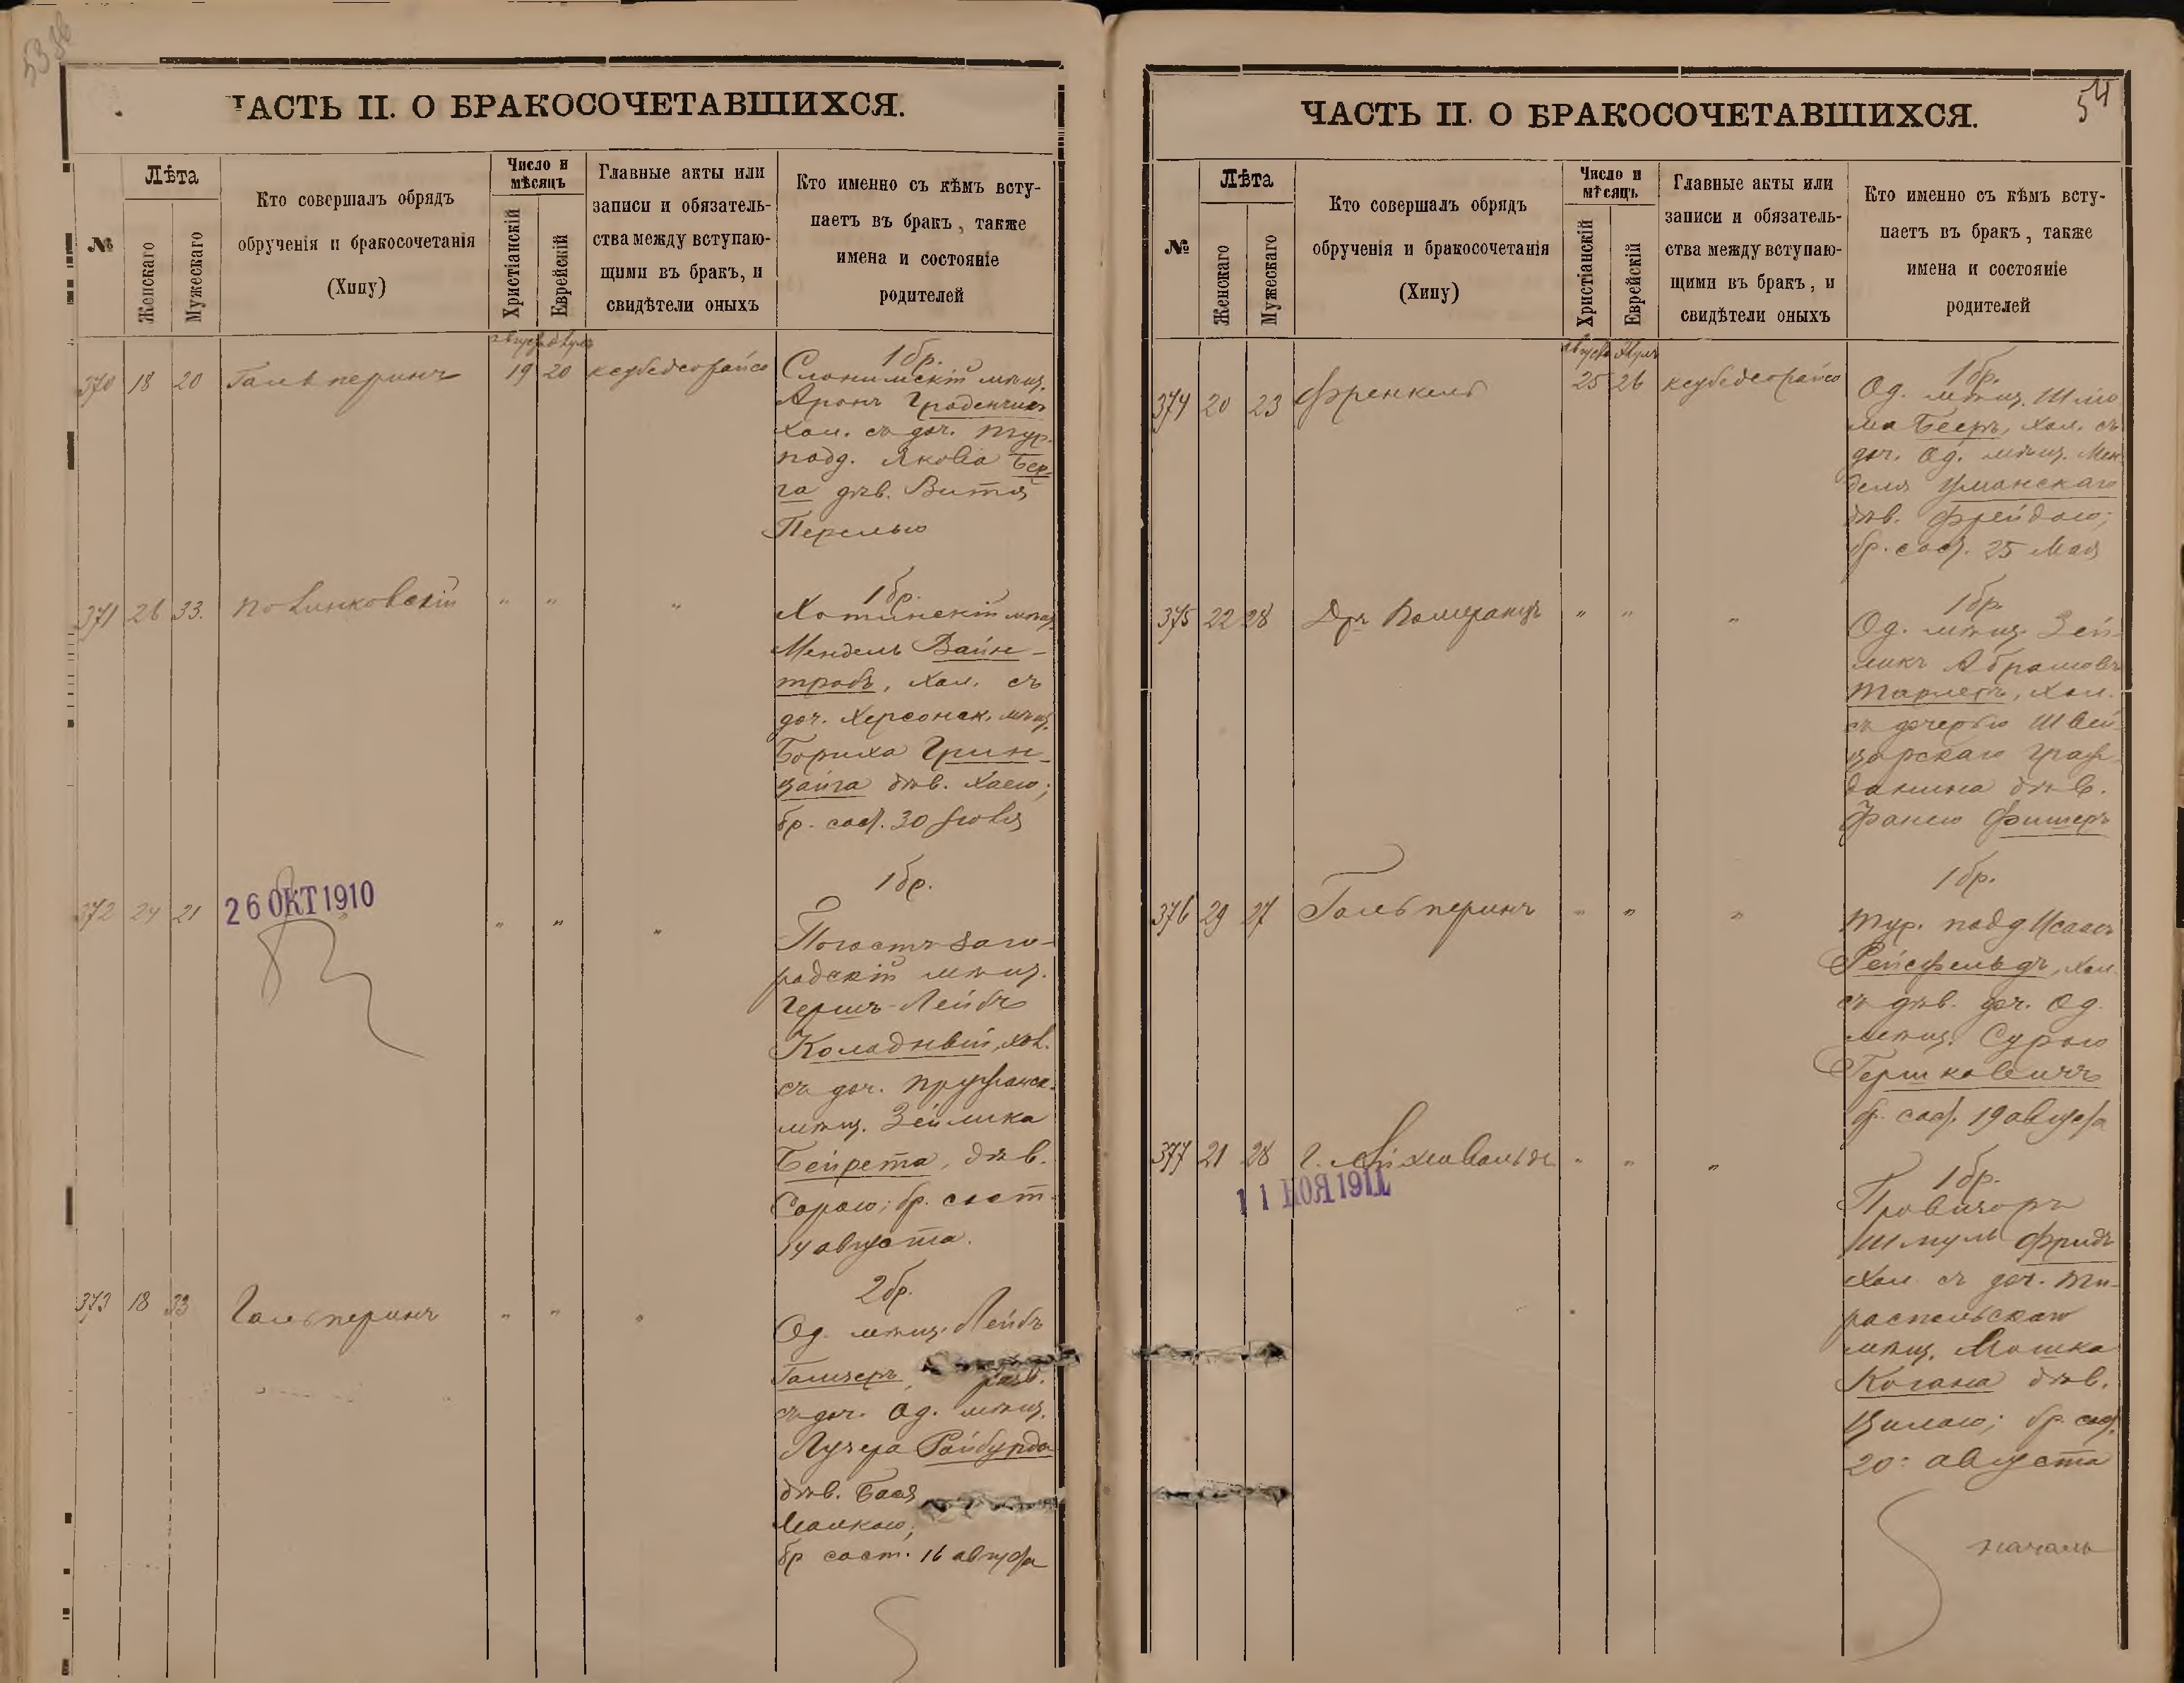 53 об
ЧАСТЬ II. О БРАКОСОЧЕТАВШИХСЯ.
№
Лѣта
Женскаго
Мужескаго
Кто совершалъ обрядъ
обрученія и бракосочетанія
(Хипу)
Число и
мѣсяцъ
Христіанскій
Еврейскій
Главные акты или
записи и обязатель-
ства между вступаю-
щими въ бракъ, и
свидѣтели оныхъ
Кто именно съ кѣмъ всту-
паетъ въ бракъ, также
имена и состояніе
родителей
августа
370 18 20 Гальперинъ 19 20
1 бр.
Слонимскій мѣщ.
Аронъ Граденчикъ
хол. съ доч. тур.
подд. Якова Бер-
га дѣв. Витя
Перелью
371 26 33. Полинковскій " " "
1 бр.
Хотинскій мѣщ.
Мендель Вайн-
траубъ, хол. съ
доч. Херсонск. мѣщ.
Боруха Грин-
цайга дѣв. Хаею;
бр. сост. 30 Іюля
372 24 21 " " "
26 ОКТ 1910
1 бр.
Погостъ-Заго-
родскій мѣщ.
Гершъ-Лейбъ
Колодный, хол.
съ доч. Пружанск.
мѣщ. Зейлика
Бейрета, дѣв.
Сорою; бр. сост.
14 августа.
373 18 33 Гальперинъ " " "
2 бр.
Од. мѣщ. Лейбъ
Гальперъ, разв.
съ доч. Од. мѣщ.
Лузера Райбурда
дѣв. Бася
Малкою;
бр сост. 16 августа
54
ЧАСТЬ II. О БРАКОСОЧЕТАВШИХСЯ.
№
Лѣта
Женскаго
Мужескаго
Кто совершалъ обрядъ
обрученія и бракосочетанія
(Хипу)
Число и
мѣсяцъ
Христіанскій
Еврейскій
Главные акты или
записи и обязатель-
ства между вступаю-
щими въ бракъ, и
свидѣтели оныхъ
Кто именно съ кѣмъ всту-
паетъ въ бракъ, также
имена и состояніе
родителей
августа
374 20 23 Френкель 25 26
1 бр.
Од. мѣщ. Шлио
ма Бееръ, хол. съ
доч. Од. мѣщ. Мен-
деля Уманскаго
дѣв. Фрейдою;
бр. сост. 25 Мая
375 22 28 Др. Померанцъ " " "
1 бр.
Од. мѣщ. Зей-
ликъ Абрамовъ
Тарлеръ, хол.
съ дочерью Швей-
царскаго граж-
данина дѣв.
Фанею Фишеръ
376 29 27 Гальперинъ " " "
1 бр.
Тур. подд Исаакъ
Рейсфельдъ, хол.
съ дѣв. доч. Од.
мѣщ. Сурою
Гершковичъ
бр. сост. 19 августа
377 21 28 " " "
11 НОЯ 1911
1 бр.
Провизоръ
Шмуль Фридъ
хол съ доч. Ти-
распольскаго
мѣщ. Мошка
Когана дѣв.
Цилею; бр. сост.
20: августа